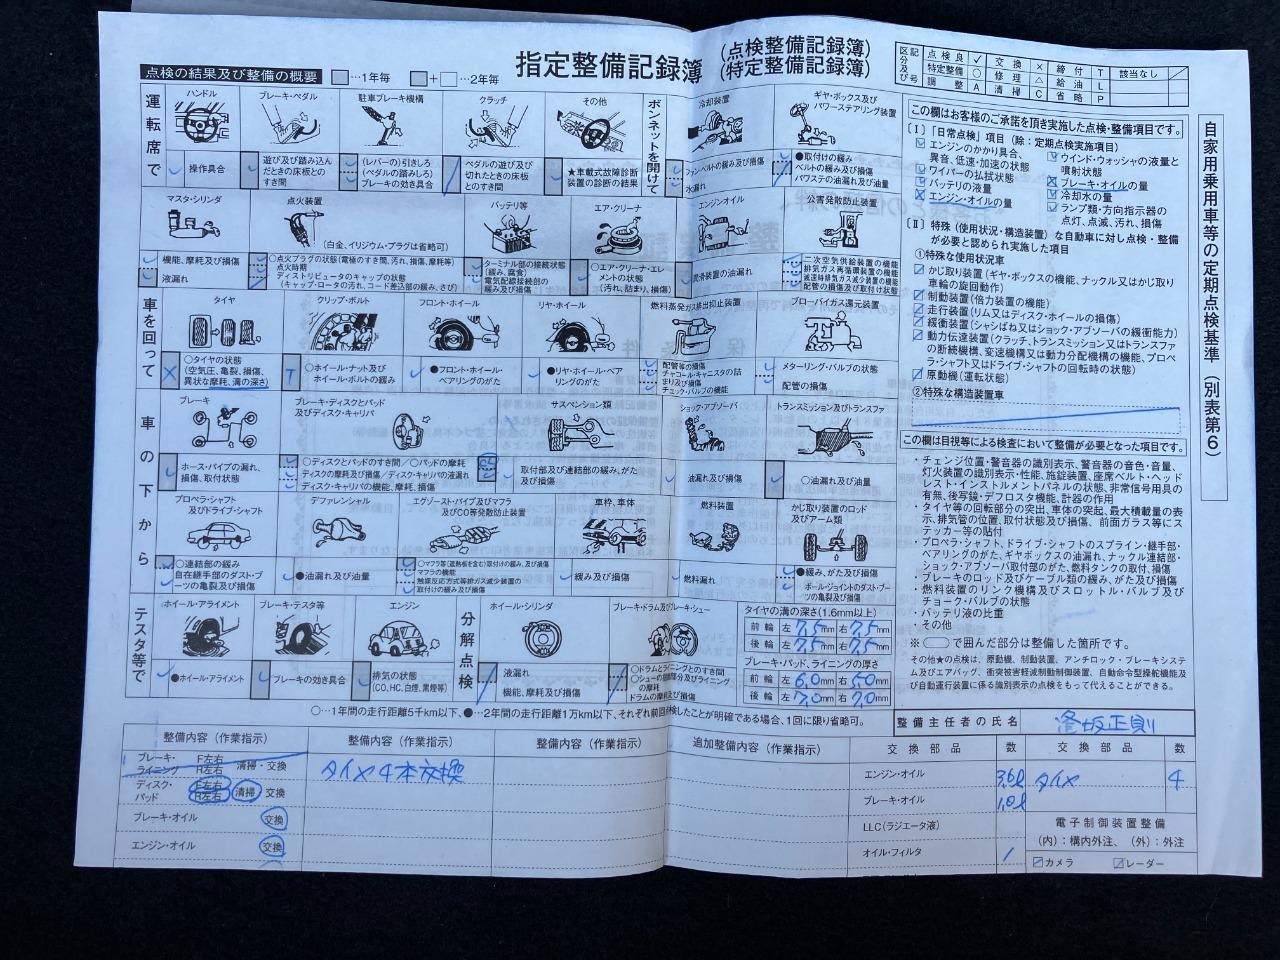 指定整備記録簿
(点検整備記録簿)
(特定整備記録簿)
区分及び記号
点検良 ✓ 交換 × 締付 T 該当なし ／
特定整備 ○ 修理 △ 給油 L
調整 A 清掃 C 省略 P
点検の結果及び整備の概要 □…1年毎 □+□…2年毎
運転席で
ハンドル
操作具合
ブレーキ・ペダル
遊び及び踏み込んだときの床板とのすき間
駐車ブレーキ機構
(レバーの)引きしろ
(ペダルの)踏みしろ
ブレーキの効き具合
クラッチ
ペダルの遊び及び切れたときの床板とのすき間
その他
★車載式故障診断装置の診断の結果
ボンネットを開けて
冷却装置
ファン・ベルトの緩み及び損傷
水漏れ
ギヤ・ボックス及びパワーステアリング装置
●取付けの緩み
ベルトの緩み及び損傷
パワステの油漏れ及び油量
マスタ・シリンダ
機能、摩耗及び損傷
液漏れ
点火装置
(白金、イリジウム・プラグは省略可)
○点火プラグの状態(電極のすき間、汚れ、損傷、摩耗等)
点火時期
ディストリビュータのキャップの状態
(キャップ・ロータの汚れ、コード差込部の緩み、さび)
バッテリ等
ターミナル部の接続状態
(緩み、腐食)
電気配線接続部の緩み及び損傷
エア・クリーナ
○エア・クリーナ・エレメントの状態
(汚れ、詰まり、損傷)
エンジンオイル
潤滑装置の油漏れ
公害発散防止装置
二次空気供給装置の機能
排気ガス再循環装置の機能
減速時排気ガス減少装置の機能
配管の損傷及び取付け状態
車を回って
タイヤ
○タイヤの状態
(空気圧、亀裂、損傷、異状な摩耗、溝の深さ)
クリップ・ボルト
○ホイール・ナット及びホイール・ボルトの緩み
フロント・ホイール
●フロント・ホイール・ベアリングのがた
リヤ・ホイール
●リヤ・ホイール・ベアリングのがた
燃料蒸発ガス排出抑止装置
配管等の損傷
チャコール・キャニスタの詰まり及び損傷
チェック・バルブの機能
ブローバイガス還元装置
メターリング・バルブの状態
配管の損傷
車の下から
ブレーキ
ホース・パイプの漏れ、損傷、取付状態
ブレーキ・ディスクとパッド及びディスク・キャリパ
○ディスクとパッドのすき間/○パッドの摩耗
ディスクの摩耗及び損傷/ディスク・キャリパの液漏れ
ディスク・キャリパの機能、摩耗、損傷
サスペンション類
取付部及び連結部の緩み、がた及び損傷
ショック・アブソーバ
油漏れ及び損傷
トランスミッション及びトランスファ
○油漏れ及び油量
プロペラ・シャフト及びドライブ・シャフト
○連結部の緩み
自在継手部のダスト・ブーツの亀裂及び損傷
デファレンシャル
●油漏れ及び油量
エグゾースト・パイプ及びマフラ及びCO等発散防止装置
○マフラ等(遮熱板を含む)取付けの緩み、及び損傷
マフラの機能
触媒反応方式等排ガス減少装置の取付けの緩み及び損傷
車枠、車体
緩み及び損傷
燃料装置
燃料漏れ
かじ取り装置のロッド及びアーム類
●緩み、がた及び損傷
ボール・ジョイントのダスト・ブーツの亀裂及び損傷
テスタ等で
ホイール・アライメント
●ホイール・アライメント
ブレーキ・テスタ等
ブレーキの効き具合
エンジン
排気の状態
(CO、HC、白煙、黒煙等)
分解点検
ホイール・シリンダ
液漏れ
機能、摩耗及び損傷
ブレーキ・ドラム及びブレーキ・シュー
○ドラムとライニングとのすき間
○シューの摺動部分及びライニングの摩耗
ドラムの摩耗及び損傷
タイヤの溝の深さ(1.6mm以上)
前輪 左 7.5mm 右 7.5mm
後輪 左 7.5mm 右 7.5mm
ブレーキ・パッド、ライニングの厚さ
前輪 左 6.0mm 右 5.0mm
後輪 左 7.0mm 右 7.0mm
○…1年間の走行距離5千km以下、●…2年間の走行距離1万km以下、それぞれ前回点検したことが明確である場合、1回に限り省略可。
この欄はお客様のご承諾を頂き実施した点検・整備項目です。
[Ⅰ]「日常点検」項目(除:定期点検実施項目)
エンジンのかかり具合、異音、低速・加速の状態
ワイパーの払拭状態
バッテリの液量
エンジン・オイルの量
ウインド・ウォッシャの液量と噴射状態
ブレーキ・オイルの量
冷却水の量
ランプ類・方向指示器の点灯、点滅、汚れ、損傷
[Ⅱ] 特殊(使用状況・構造装置)な自動車に対し点検・整備が必要と認められ実施した項目
①特殊な使用状況車
かじ取り装置(ギヤ・ボックスの機能、ナックル又はかじ取り車輪の旋回動作)
制動装置(倍力装置の機能)
走行装置(リム又はディスク・ホイールの損傷)
緩衝装置(シャシばね又はショック・アブソーバの緩衝能力)
動力伝達装置(クラッチ、トランスミッション又はトランスファの断続機構、変速機構又は動力分配機構の機能、プロペラ・シャフト又はドライブ・シャフトの回転時の状態)
原動機(運転状態)
②特殊な構造装置車
この欄は目視等による検査において整備が必要となった項目です。
・チェンジ位置・警音器の識別表示、警音器の音色・音量、灯火装置の識別表示・性能、施錠装置、座席ベルト・ヘッドレスト・インストルメントパネルの状態、非常信号用具の有無、後写鏡・デフロスタ機能、計器の作用
・タイヤ等の回転部分の突出、車体の突起、最大積載量の表示、排気管の位置、取付状態及び損傷、前面ガラス等にステッカー等の貼付
・プロペラ・シャフト、ドライブ・シャフトのスプライン・継手部・ベアリングのがた、ギヤボックスの油漏れ、ナックル連結部・ショック・アブソーバ取付部のがた、燃料タンクの取付、損傷
・ブレーキのロッド及びケーブル類の緩み、がた及び損傷
・燃料装置のリンク機構及びスロットル・バルブ及びチョーク・バルブの状態
・バッテリ液の比重
・その他
※ ◯で囲んだ部分は整備した箇所です。
その他★の点検は、原動機、制動装置、アンチロック・ブレーキシステム及びエアバッグ、衝突被害軽減制動制御装置、自動命令型操舵機能及び自動運行装置に係る識別表示の点検をもって代えることができる。
自家用乗用車等の定期点検基準(別表第6)
整備主任者の氏名 逢坂正則
整備内容(作業指示)
ブレーキ・ライニング F左右 R左右 清掃・交換
ディスク・パッド F左右 R左右 清掃・交換
ブレーキ・オイル 交換
エンジン・オイル 交換
整備内容(作業指示)
タイヤ4本交換
整備内容(作業指示)
追加整備内容(作業指示)
交換部品 数 交換部品 数
エンジン・オイル 3.6ℓ タイヤ 4
ブレーキ・オイル 1.0ℓ
LLC(ラジエータ液)
オイル・フィルタ 1
電子制御装置整備
(内):構内外注、(外):外注
カメラ レーダー